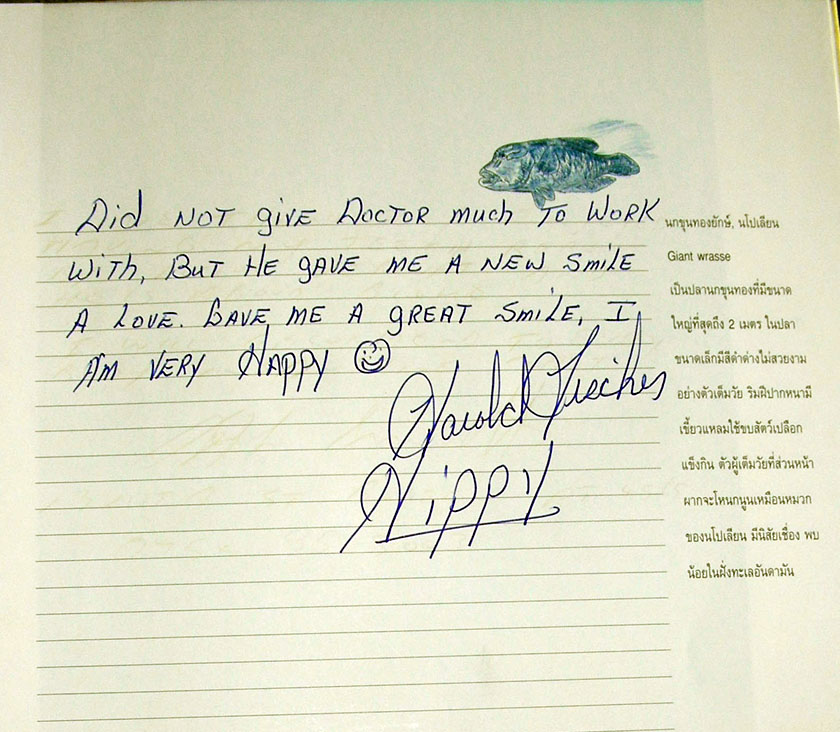 Did NOT giVE DOCTOR much TO WORK
With, BuT HE gAVE ME A NEW SmiLE
A LOVE. GAVE ME A gREAT SmiLE, I
Am VERY HAPPY
Harold
Hippy
นกขุนทองยักษ์, นโปเลียน
Giant wrasse
เป็นปลานกขุนทองที่มีขนาด
ใหญ่ที่สุดถึง 2 เมตร ในปลา
ขนาดเล็กมีสีดำด่างไม่สวยงาม
อย่างตัวเต็มวัย ริมฝีปากหนามี
เขี้ยวแหลมใช้ขบสัตว์เปลือก
แข็งกิน ตัวผู้เต็มวัยที่ส่วนหน้า
ผากจะโหนกนูนเหมือนหมวก
ของนโปเลียน มีนิสัยเชื่อง พบ
น้อยในฝั่งทะเลอันดามัน